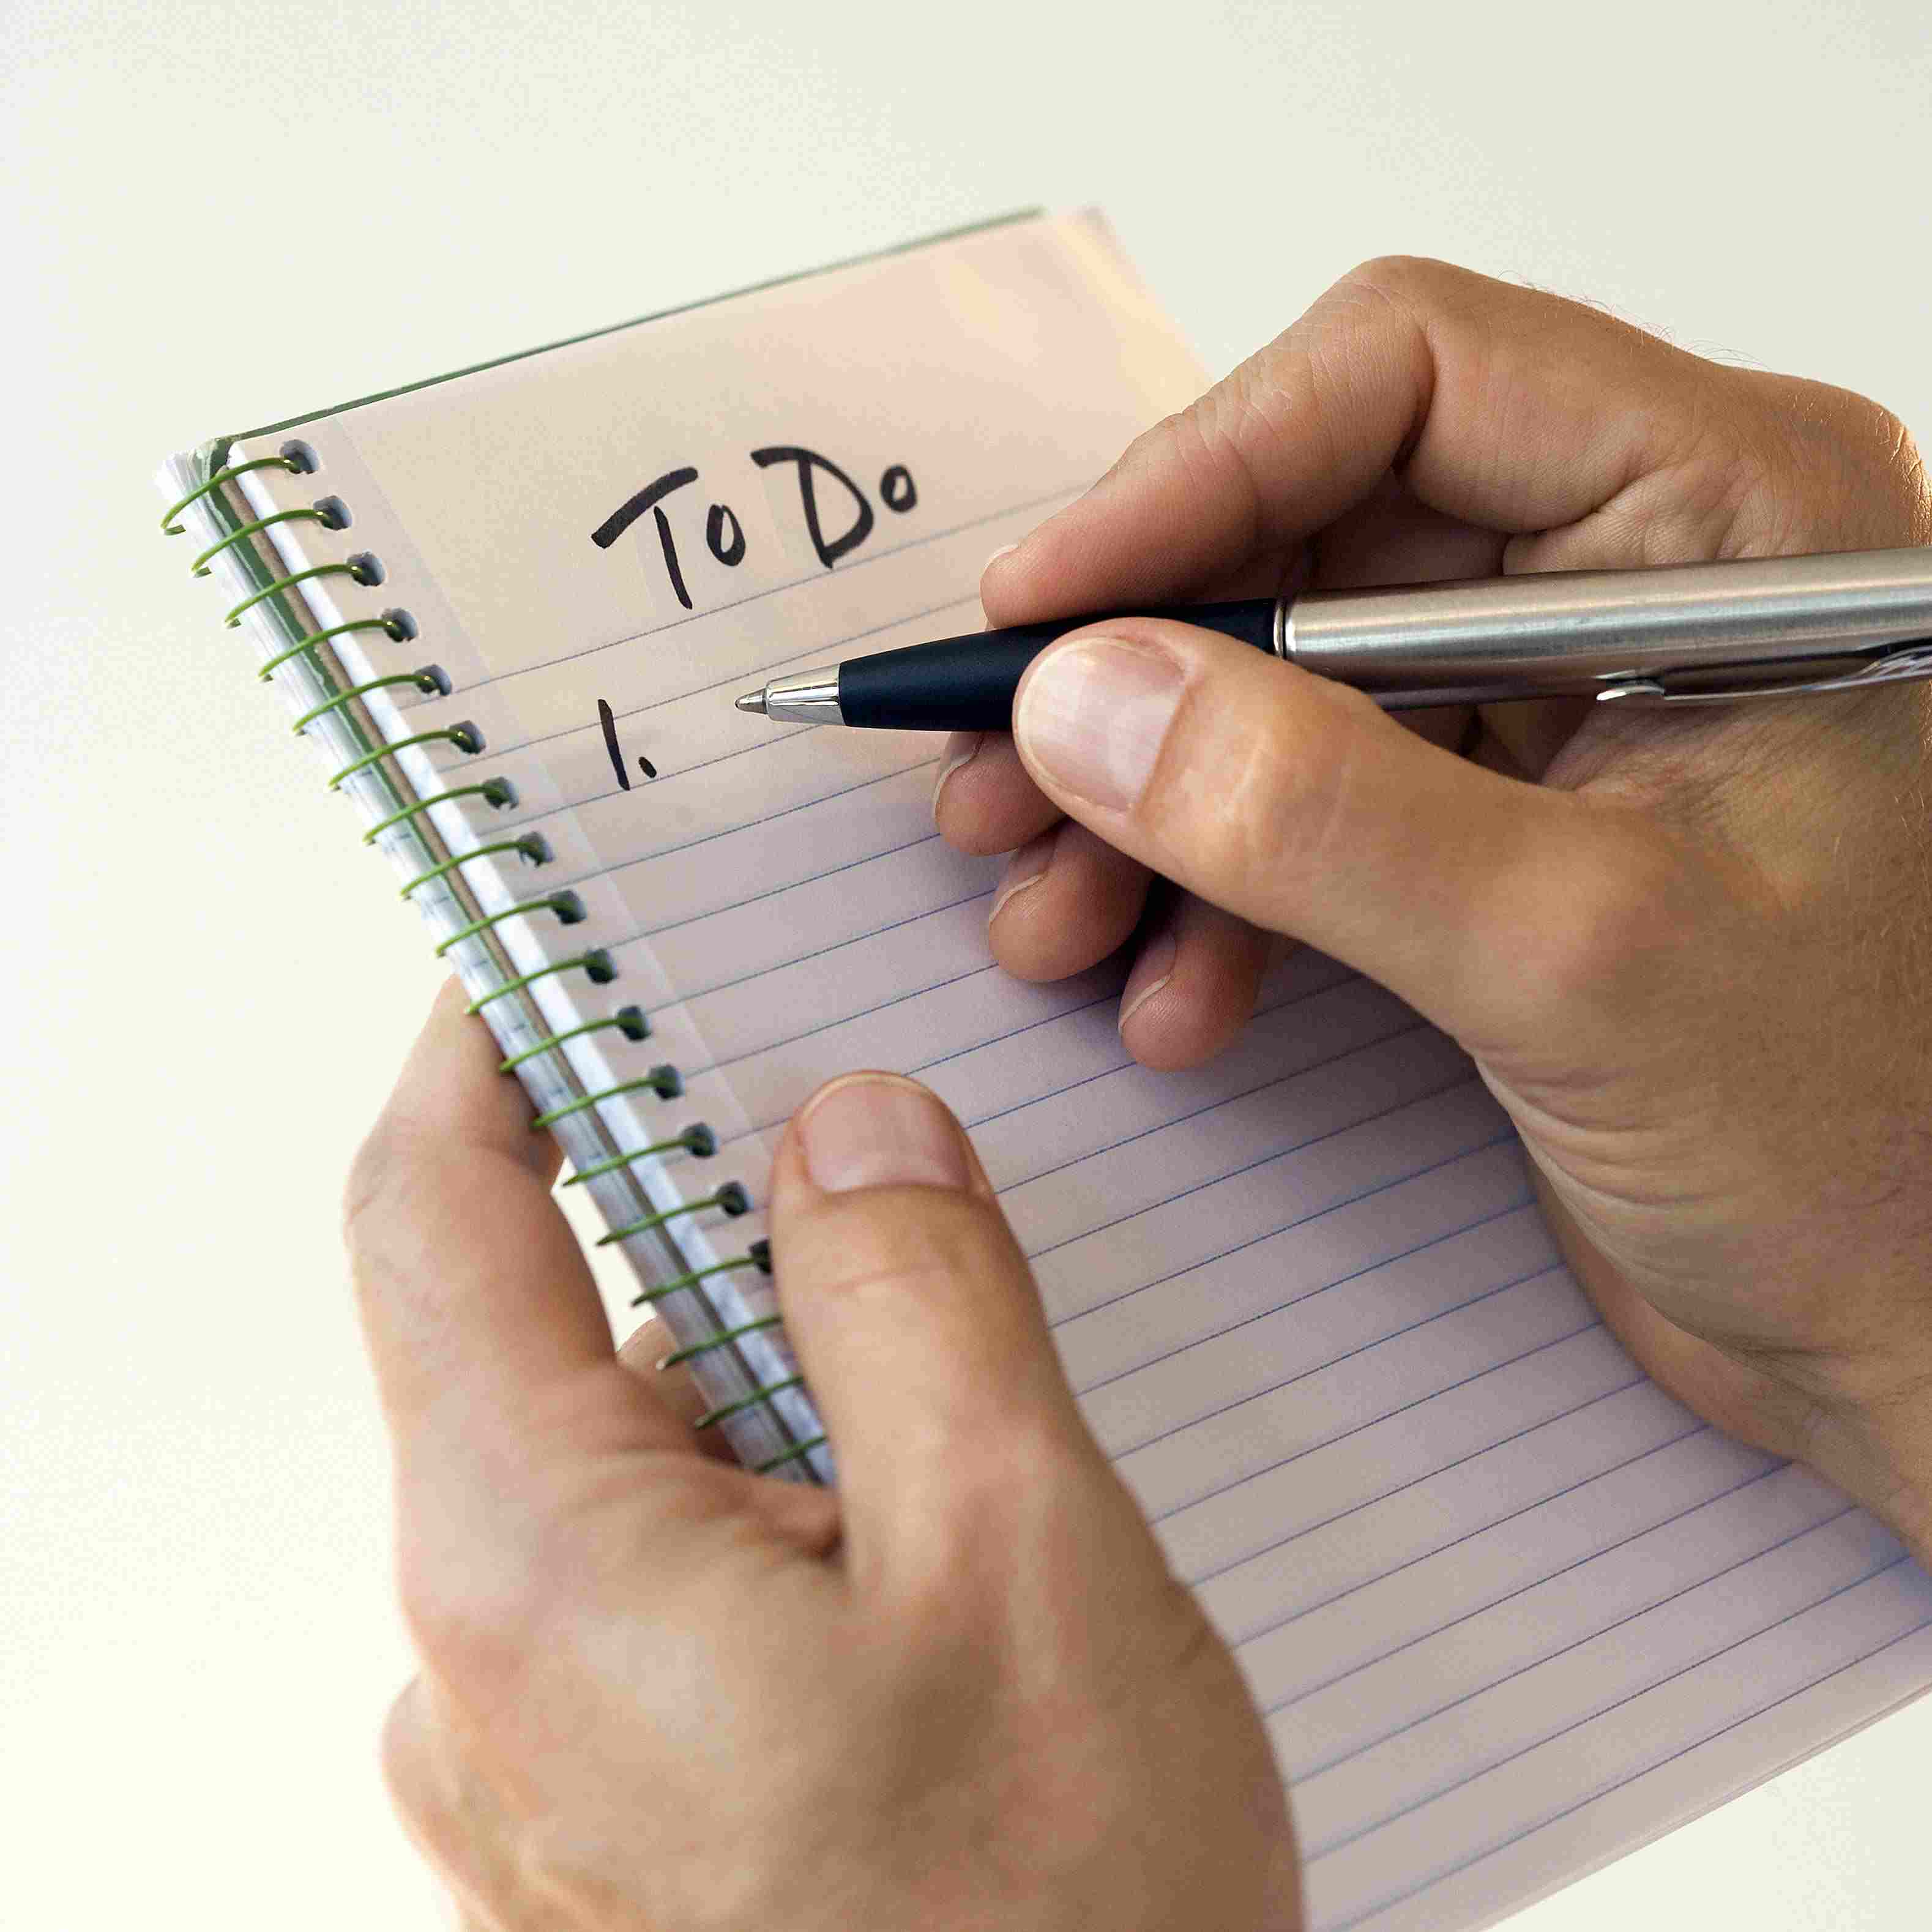 To Do
1.